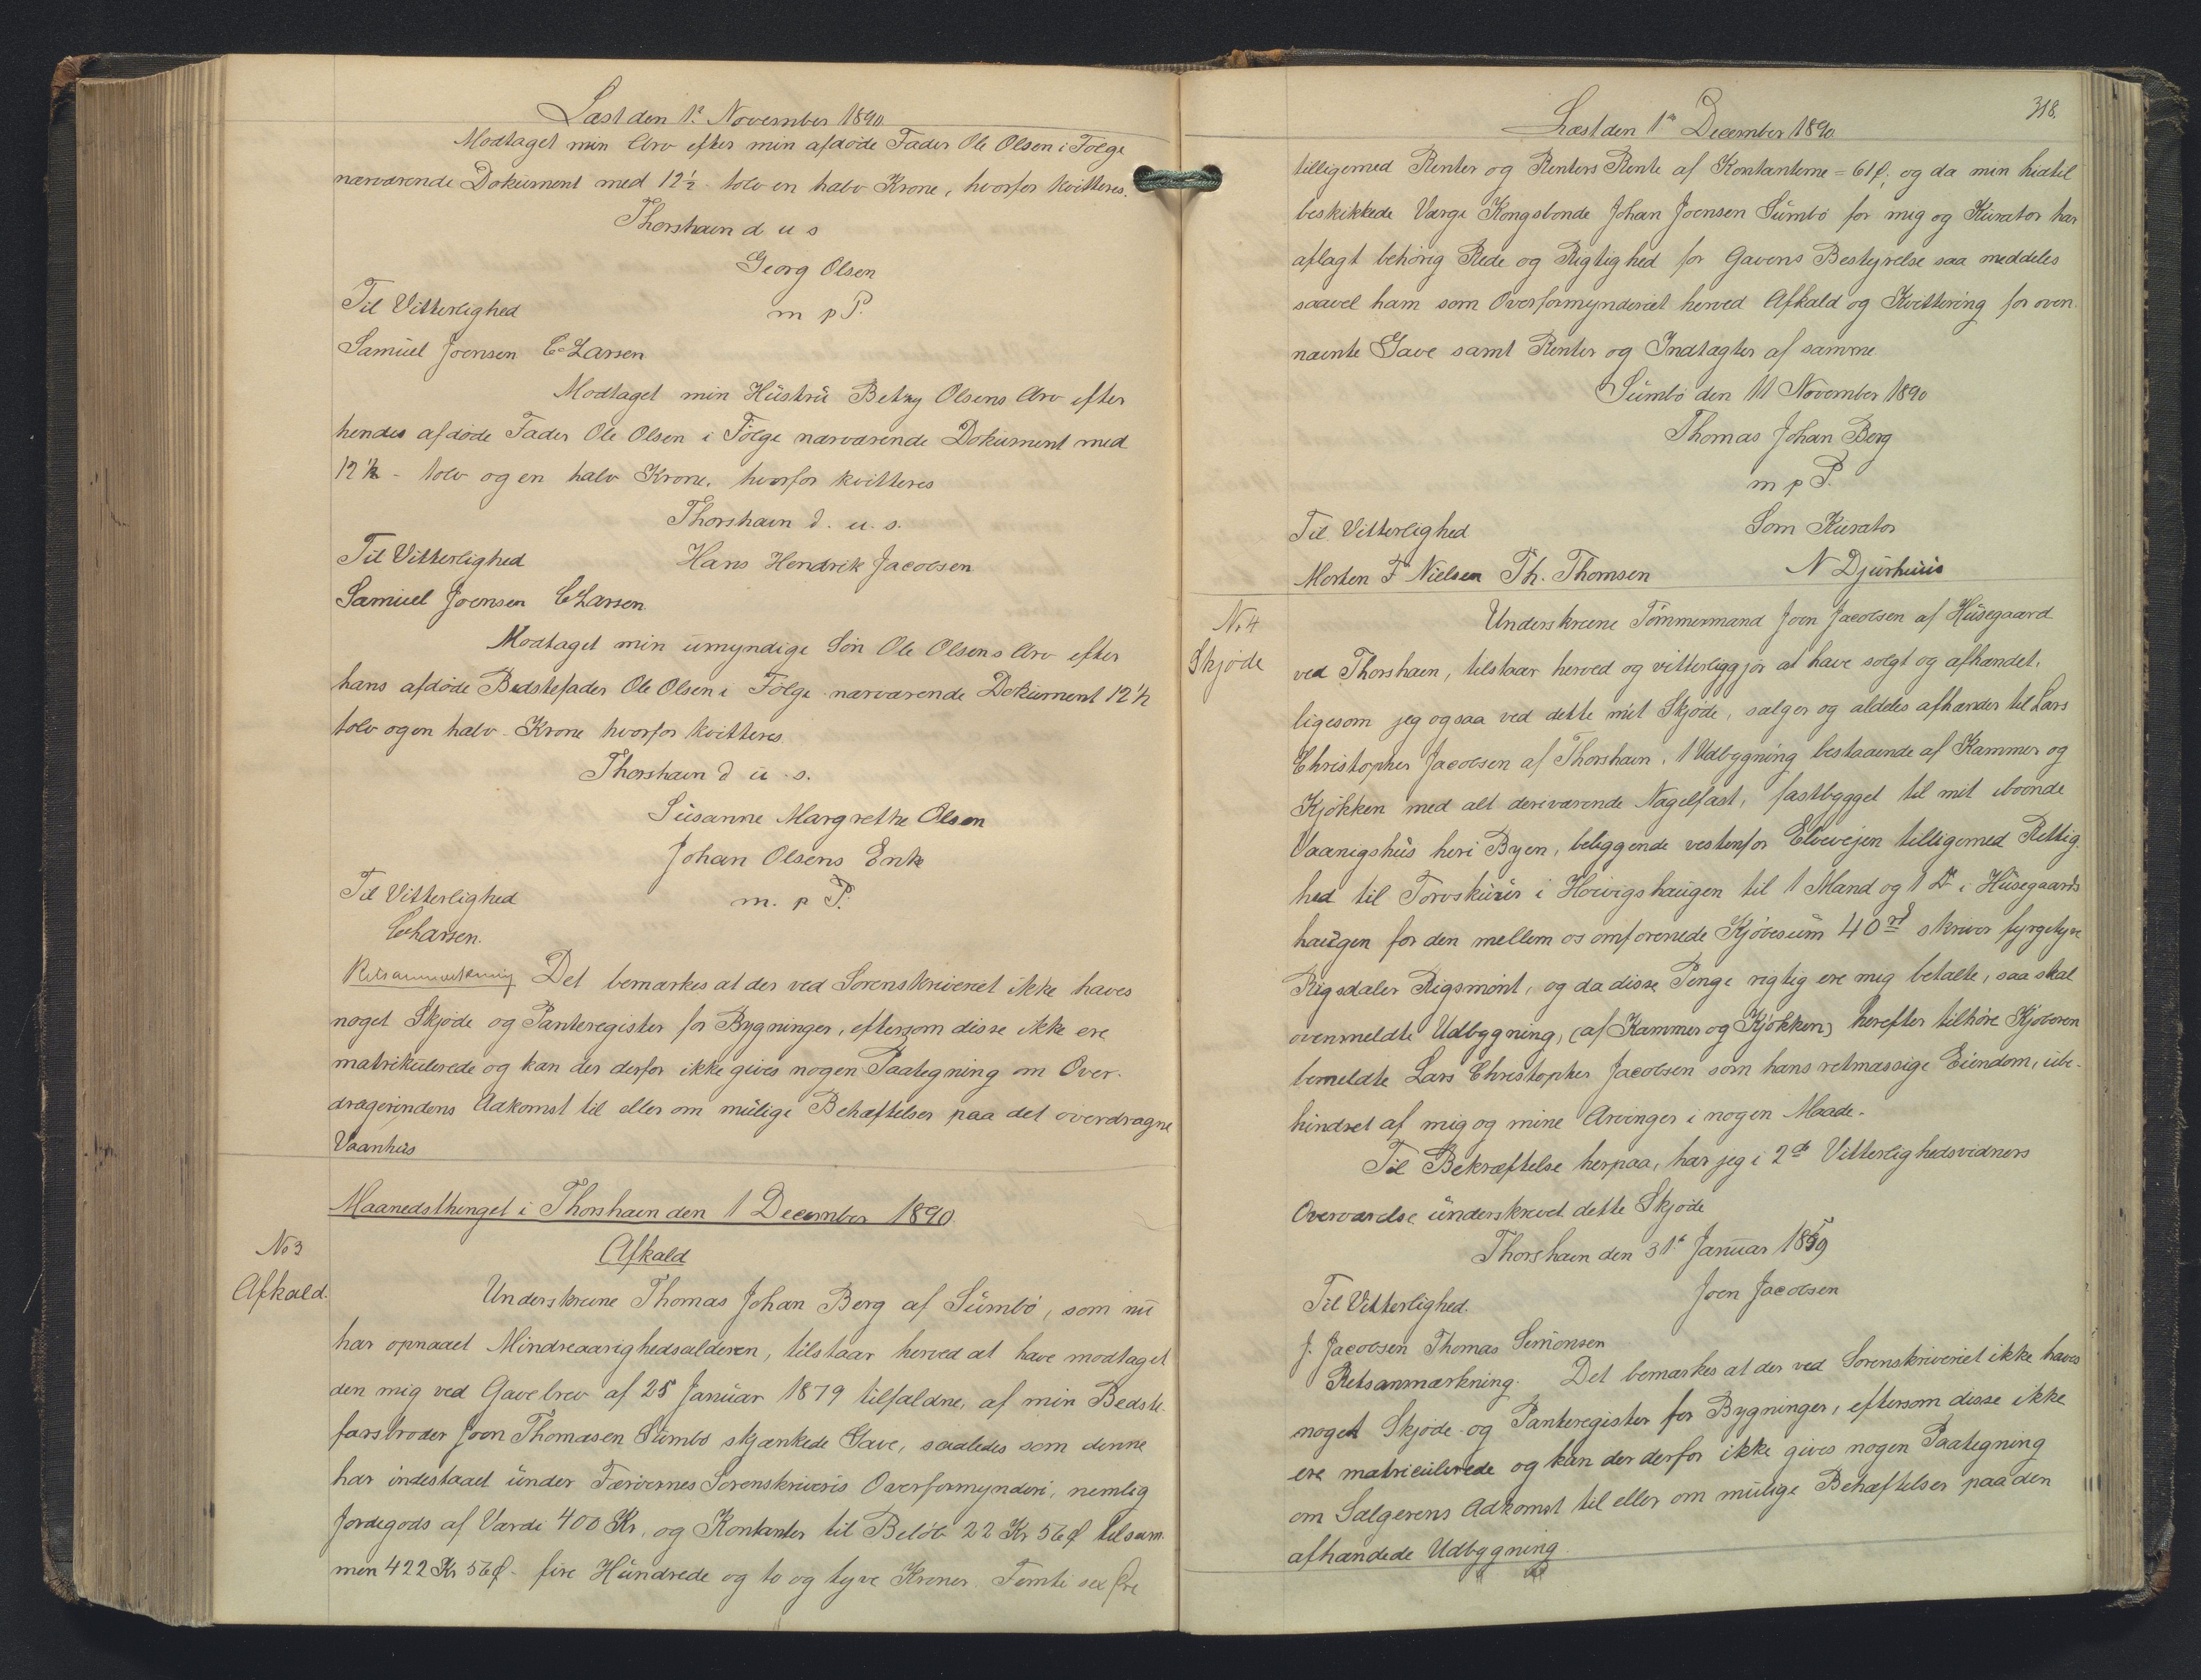 Læst den 1ᵉ November 1890
Modtaget min Arv efter min afdøde Fader Ole Olsen i Følge
nærværende Dokument med 12½ tolv en halv Krone, hvorfor kvitteres.
Thorshavn d u s
Georg Olsen
Til Vitterlighed m p P.
Samuel Joensen C Larsen
Modtaget min Hüstrü Betzy Olsens Arv efter
hendes afdøde Fader Ole Olsen i Følge nærværende Dokument med
12½ - tolv og en halv Krone, hvorfor kvitteres
Thorshavn d. u. s.
Til Vitterlighed Hans Hendrik Jacobsen
Samuel Joensen C Larsen
Modtaget min umyndige Søn Ole Olsens Arv efter
hans afdøde Bedstefader Ole Olsen i Følge nærværende Dokument 12½
tolv og en halv Krone hvorfor kvitteres.
Thorshavn d u. s.
Susanne Margrethe Olsen
Johan Olsens Enke
Til Vitterlighed m. p P.
C Larsen.
Retsanmærkning Det bemærkes at der ved Sorenskriveriet ikke haves
noget Skjøde og Panteregister for Bygninger, eftersom disse ikke ere
matrikulerede og kan der derfor ikke gives nogen Paategning om Over-
dragerindens Adkomst til eller om mulige Behæftelser paa det overdragne
Vaanhus
Maanedsthinget i Thorshavn den 1 December 1890.
No 3 Afkald
Afkald. Underskrevne Thomas Johan Berg af Sumbø, som nu
har opnaaet Mindreaarighedsalderen, tilstaar herved at have modtaget
den mig ved Gavebrev af 25 Januar 1879 tilfaldne, af min Bedste-
farsbroder Joen Thomasen Sumbø skjænkede Gave, saaledes som denne
har indestaaet under Færøernes Sorenskriveris Overformynderi, nemlig
Jordegods af Værdi 400 Kr. og Kontanter til Beløb 22 Kr 56 Ø tilsam-
men 422 Kr 56 Ø - fire Hundrede og to og tyve Kroner Femti sex Øre
318.
Læst den 1ᵉ December 1890
tilligemed Renter og Renters Rente af Kontanterne = 61 Ø; og da min hidtil
beskikkede Værge Kongsbonde Johan Joensen Sumbø for mig og Kurator har
aflagt behørig Rede og Rigtighed for Gavens Bestyrelse saa meddeles
saavel ham som Overformynderiet herved Afkald og Kvittering for oven
nævnte Gave samt Renter og Indtægter af samme
Sumbø den 11 November 1890
Thomas Johan Berg
m p P.
Til Vitterlighed Som Kurator
Morten F Nielsen Th. Thomsen N Djurhuus
No 4 Underskrevne Tømmermand Joen Jacobsen af Husegaard
Skjøde ved Thorshavn, tilstaar herved og vitterliggjør at have solgt og afhændet,
ligesom jeg ogsaa ved dette mit Skjøde, sælger og aldeles afhænder til Lars
Christopher Jacobsen af Thorshavn, 1 Udbygning bestaaende af Kammer og
Kjøkken med alt deriværende Nagelfast, fastbygget til mit iboende
Vaanigshus heri Byen, beliggende vestenfor Elvevejen tilligemed Rettig-
hed til Torvskuur i Hoivigshaugen til 1 Mand og 1 Do i Husegaards
haugen for den mellem os omforenede Kjøbesum 40 rd skriver fyrgetyve
Rigsdaler Rigsmønt, og da disse Penge rigtig ere mig betalte, saa skal
ovenmeldte Udbygning, (af Kammer og Kjøkken) herefter tilhøre Kjøberen
bemeldte Lars Christopher Jacobsen som hans retmæssige Eiendom, ube-
hindret af mig og mine Arvinger i nogen Maade.
Til Bekræftelse herpaa, har jeg i 2de Vitterlighedsvidners
Overværelse underskrevet dette Skjøde
Thorshavn den 31ᵉ Januar 1859
Til Vitterlighed. Joen Jacobsen
J. Jacobsen Thomas Simonsen
Retsanmærkning. Det bemærkes at der ved Sorenskriveriet ikke haves
noget Skjøde og Panteregister for Bygninger, eftersom disse ikke
ere matriculerede og kan der derfor ikke gives nogen Paategning
om Sælgerens Adkomst til eller om mulige Behæftelser paa den
afhændede Udbygning.